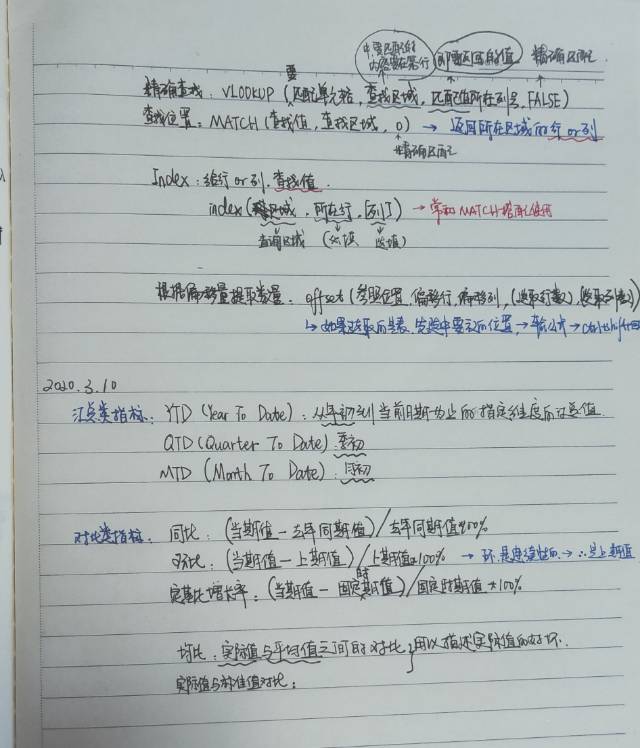 要匹配的内容要在第一行 即要返回的值 精确匹配
精确查找: VLOOKUP (要匹配单元格, 查找区域, 匹配值所在列号, FALSE)
查找位置: MATCH (查找值, 查找区域, 0) → 返回所在区域的行 or 列
精确匹配
Index: 给行 or 列, 查找值
index (区域, 所在行, [列]) → 常和 MATCH 搭配使用
查询区域 (必填 选填)
根据偏移量提取数量: offset (参照位置, 偏移行, 偏移列, (选取行数), (选取列数))
↳ 如果选取后是表, 先选中要示的位置 → 输公式 → ctrl+shift+回
2020.3.10
汇总类指标: YTD (Year To Date): 从年初到当前日期为止的指定维度的汇总值
QTD (Quarter To Date): 季初
MTD (Month To Date): 月初
对比类指标: 同比: (当期值 - 去年同期值) / 去年同期值*100%
环比: (当期值 - 上期值) / 上期值*100% → 环是连续性的 → ∴是上期值
定基比增长率: (当期值 - 固定时期值) / 固定时期值 *100%
均比: 实际值与平均值之间的对比, 用以描述实际值的好坏.
实际值与标准值对比: